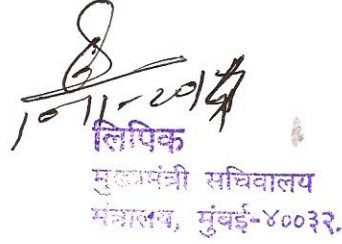 10-11-2014
लिपिक
मुख्यमंत्री सचिवालय
मंत्रालय, मुंबई-४०००३२.